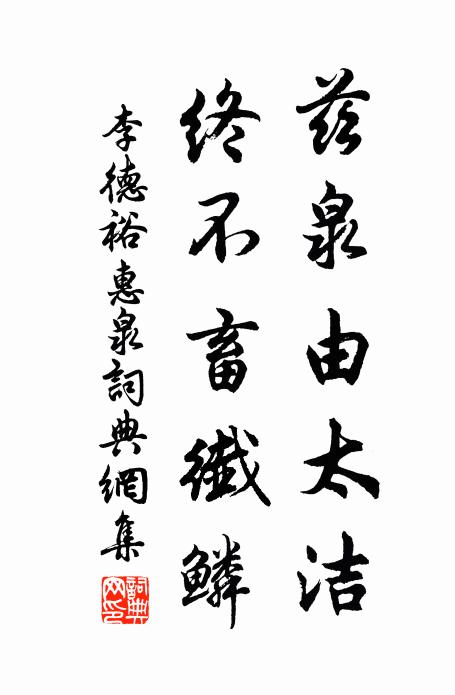 茲泉由太洁
終不畜纖鱗
李德裕惠泉詞典網集
詞典网印